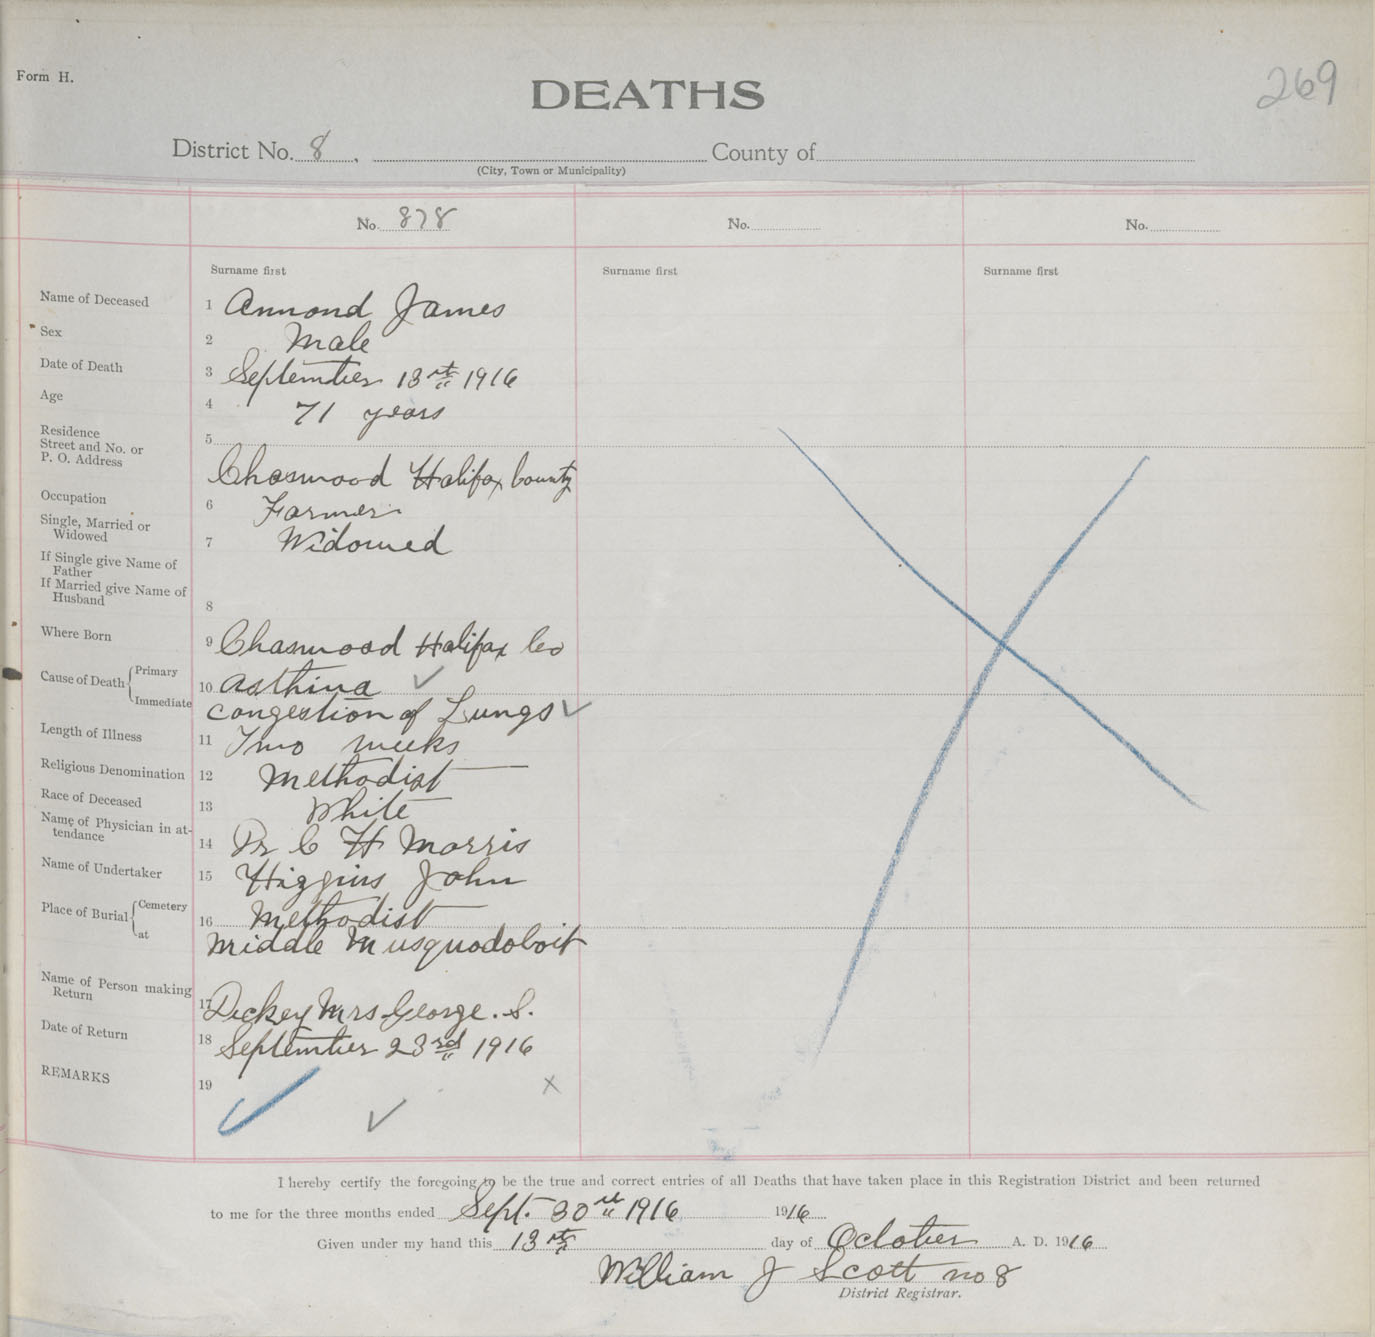 Form H.
DEATHS
269
District No. 8, County of
(City, Town or Municipality)
No. 878 No. No.
Surname first Surname first Surname first
Name of Deceased 1 Annond James
Sex 2 Male
Date of Death 3 September 13th 1916
Age 4 71 years
Residence
Street and No. or
P. O. Address 5
Chaswood Halifax County
Occupation 6 Farmer
Single, Married or
Widowed 7 Widowed
If Single give Name of
Father
If Married give Name of
Husband 8
Where Born 9 Chaswood Halifax Co
Cause of Death { Primary 10 Asthma
Immediate Congestion of Lungs
Length of Illness 11 Two weeks
Religious Denomination 12 Methodist
Race of Deceased 13 White
Name of Physician in at-
tendance 14 Dr C H Morris
Name of Undertaker 15 Higgins John
Place of Burial { Cemetery 16 Methodist
at Middle Musquodoboit
Name of Person making
Return 17 Dickey Mrs George. S.
Date of Return 18 September 23rd 1916
REMARKS 19
I hereby certify the foregoing to be the true and correct entries of all Deaths that have taken place in this Registration District and been returned
to me for the three months ended Sept. 30th 1916 1916
Given under my hand this 13th day of October A. D. 1916
William J Scott no 8
District Registrar.